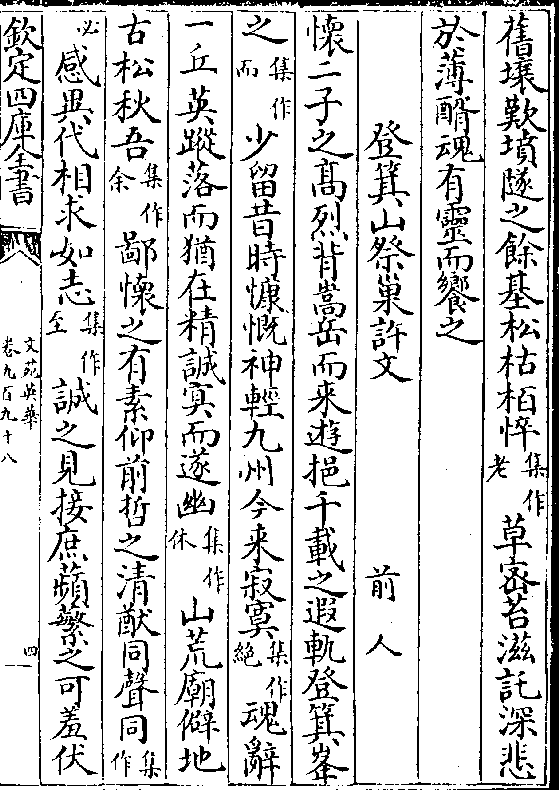 舊壤歎墳隧之餘基松枯栢悴集作老草宻苔滋託深悲
於薄醑魂有靈而饗之
登箕山祭巢許文 前人
懷二子之髙烈背嵩岳而来遊挹千載之遐軌登箕峯
之集作而少留昔時慷慨神輕九州今来寂寞集作絶魂辭
一丘英蹤落而猶在精誠冥而遂幽集作休山荒廟僻地
古松秋吾集作余鄙懷之有素仰前哲之清猷同聲同集作
必感異代相求如志集作至誠之見接庶蘋蘩之可羞伏
欽定四庫全書
文苑英華
卷九百九十八
四